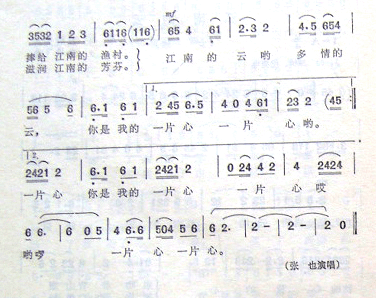 3532 1 2 3 | 6116 (116) | 65 4 61 | 2·3 2 | 4·5 654
捧给 江南的 渔村。 江南的 云 哟 多情的
滋润 江南的 芳芬。
mf
565 6 | 6·1 6 1 | 1. 2 45 6·5 | 4 0 4 61 | 23 2 (45
云, 你是我的 一片心 一片 心 哟。
2. 2421 2 | 6·1 6 1 | 2421 2 | 0 24 4 2 | 4 2424
一片心 你是我的 一片心 一片 心 哎
6 6· | 6 0 5 | 4 6·6 | 504 5 6 | 6 2· | 2 - | 2 - | 2 0
哟啰 一片 心 一片 心。
(张 也演唱)